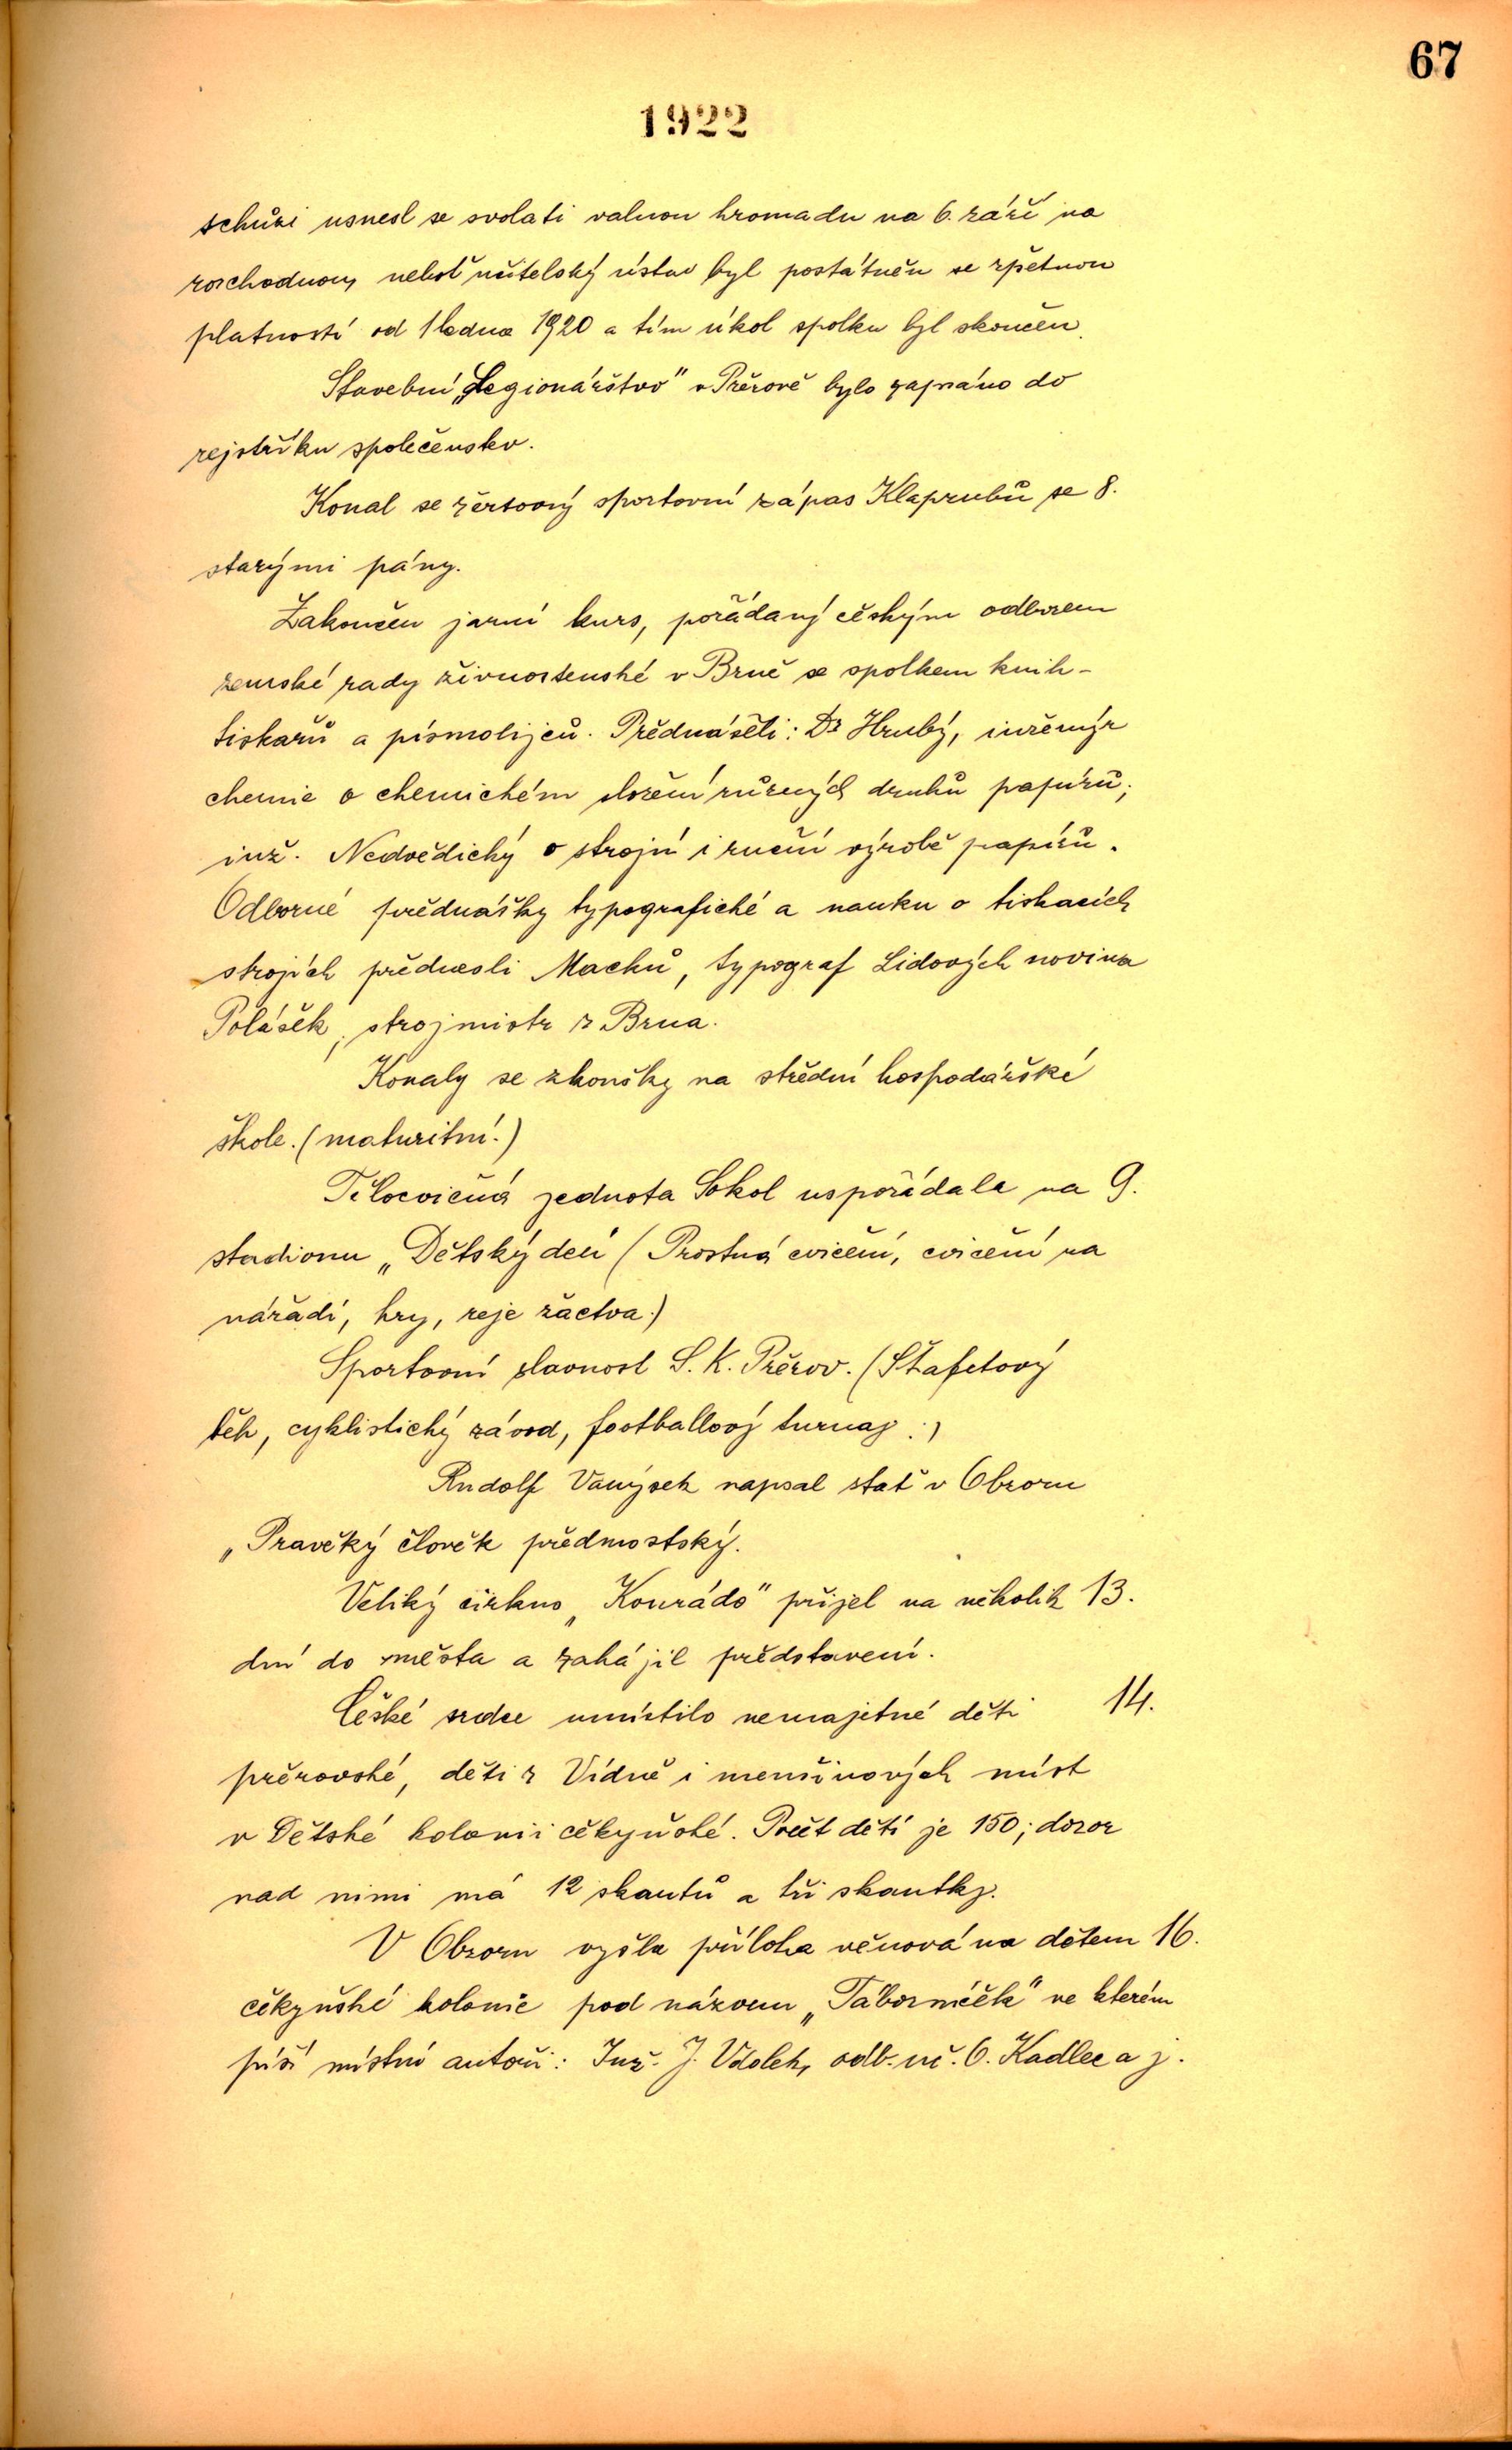 67
1922
schůzi usnesl se svolati valnou hromadu na 6. září na
rozchodnou, neboť učitelský ústav byl postátněn se zpětnou
platností od 1 ledna 1920 a tím úkol spolku byl skončen.
Stavební „Legionářstvo" v Přerově bylo zapsáno do
rejstříku společenstev.
Konal se žertovný sportovní zápas Klapzubů se 8.
starými pány.
Zakončen jarní kurs, pořádaný českým odborem
zemské rady živnostenské v Brně se spolkem knih-
tiskařů a písmolijců. Přednášeli: Dr Hrubý, inženýr
chemie o chemickém složení různých druhů papírů;
inž. Nedvědický o strojní i ruční výrobě papírů.
Odborné přednášky typografické a nauku o tiskacích
strojích přednesli Machů, typograf Lidových novin a
Polášek, strojmistr z Brna.
Konaly se zkoušky na střední hospodářské
škole. (maturitní.)
Tělocvičná jednota Sokol uspořádala na 9.
stadionu „Dětský den (Prostná cvičení, cvičení na
nářadí, hry, reje žactva.)
Sportovní slavnost S. K. Přerov. (Štafetový
běh, cyklistický závod, footballový turnaj.)
Rudolf Vanýsek napsal stať v Obzoru
„Pravěký člověk předmostský.
Veliký cirkus „Konrádo" přijel na několik 13.
dní do města a zahájil představení.
České srdce umístilo nemajetné děti 14.
přerovské, děti z Vídně i menšinových míst
v Dětské kolonii čekyňské. Počet dětí je 150; dozor
nad nimi má 12 skautů a tři skautky.
V Obzoru vyšla příloha věnována dětem 16.
čekyňské kolonie pod názvem „Táborníček" ve kterém
píší místní autoři: Inž. J. Vdolek, odb. uč. O. Kadlec a j.